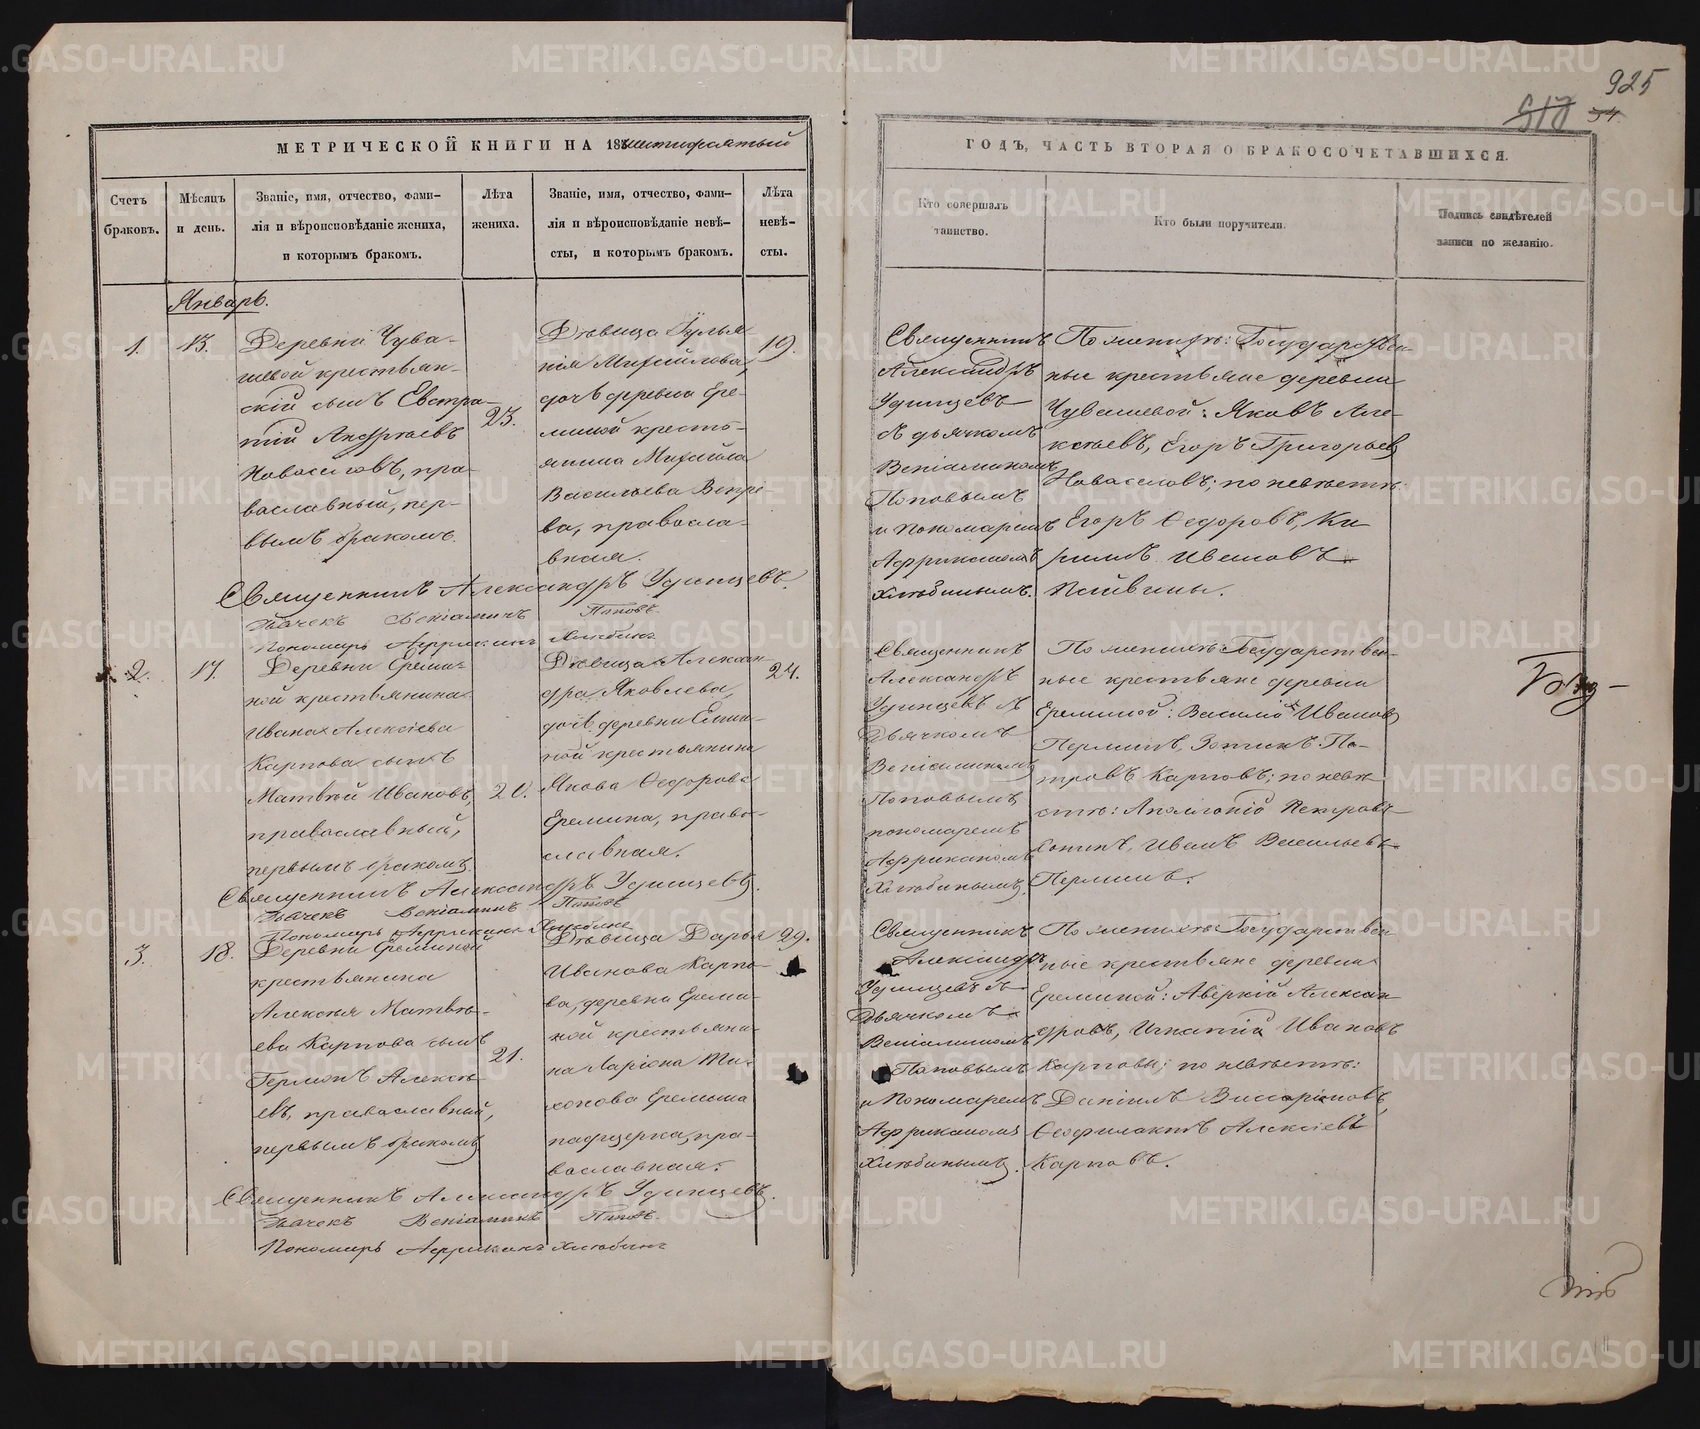 925
МЕТРИЧЕСКОЙ КНИГИ НА 186
ГОДЪ, ЧАСТЬ ВТОРАЯ О БРАКОСОЧЕТАВШИХСЯ.
Счетъ браковъ.
Мѣсяцъ и день.
Званіе, имя, отчество, фами-
лія и вѣроисповѣданіе жениха,
и которымъ бракомъ.
Лѣта жениха.
Званіе, имя, отчество, фами-
лія и вѣроисповѣданіе невѣ-
сты, и которымъ бракомъ.
Лѣта невѣ-
сты.
Кто совершалъ
таинство.
Кто были поручители.
Подпись свидѣтелей
записи по желанію.
Январь.
1.
13.
Деревни Чува-
шевой крестьян-
скій сынъ Евстра-
тій Андреевъ
Новоселовъ, пра-
вославный, пер-
вымъ бракомъ.
23.
Дѣвица Іулья-
нія Михайлова,
дочь деревни Ере-
миной кресть-
янина Михаила
Васильева
ва, правосла-
вная.
19.
Священникъ
Александръ
Удинцевъ
съ дьячкомъ
Веніаминомъ
Поповымъ
и пономаремъ
Африканомъ
Хлюбинымъ.
По женихѣ: Государствен-
ные крестьяне деревни
Чувашевой: Яковъ Але-
ксѣевъ, Егоръ Григорьевъ
Новоселовъ; по невѣстѣ:
Егоръ Ѳедоровъ, Ки
рилъ Ивановъ
Пайвины.
Священникъ Александръ Удинцевъ.
Дьячекъ Веніаминъ Поповъ.
Пономарь Африканъ Хлюбинъ
2.
17.
Деревни Ереми-
ной крестьянина
Ивана Алексіева
Карпова сынъ
Матвѣй Ивановъ,
православный,
первымъ бракомъ
20.
Дѣвица Алексан-
дра Яковлева,
дочь деревни Ереми-
ной крестьянина
Якова Ѳедорова
Еремина, право-
славная.
24.
Священникъ
Александръ
Удинцевъ съ
Дьячкомъ
Веніаминомъ
Поповымъ
пономаремъ
Африканомъ
Хлюбинымъ
По женихѣ: Государствен-
ные крестьяне деревни
Ереминой: Василій Ивановъ
Перминъ, Зотикъ Пе-
тровъ Карповъ; по невѣ-
стѣ: Аполлоній Петровъ
Иванъ Васильевъ
Перминъ.
Священникъ Александръ Удинцевъ.
Дьячекъ Веніаминъ Поповъ
Пономарь Африканъ Хлюбинъ
3.
18.
Деревни Ереминой
крестьянина
Алексѣя Матвѣ-
ева Карпова сынъ
Германъ Алексѣ-
евъ, православный,
первымъ бракомъ
21.
Дѣвица Дарья
Иванова Карпо-
ва, деревни Ереми-
ной крестьяни-
на Ларіона Ти-
хонова Еремина
падчерка, пра-
вославная.
29.
Священникъ
Александръ
Удинцевъ съ
Дьячкомъ
Веніаминомъ
Поповымъ
и Пономаремъ
Африканомъ
Хлюбинымъ.
По женихѣ: Государствен-
ные крестьяне деревни
Ереминой: Аверкій Алексан-
дровъ, Игнатій Ивановъ
Карповы; по невѣстѣ:
Даніилъ Виссаріоновъ,
Ѳеофилактъ Алексіевъ
Карповъ.
Священникъ Александръ Удинцевъ.
Дьячекъ Веніаминъ Поповъ.
Пономарь Африканъ Хлюбинъ
METRIKI.GASO-URAL.RU